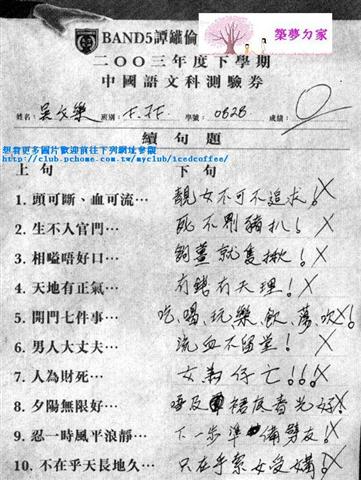 築夢ㄉ家
BAND5譚鑪倫
二○○三年度下學期
中國語文科測驗券
姓名: 吳 樂 班別: F. 學號: 0828 成績: 0
想看更多圖片歡迎前往下列網址參觀
http://club.pchome.com.tw/myclub/icedcoffee/
續句題
上句 下句
1. 頭可斷、血可流⋯ 靚女不可不追求!
2. 生不入官門⋯ 死不劏豬扒!
3. 相嗌唔好口⋯ 鉤薑就隻揪!
4. 天地有正氣⋯ 有錢有天理!
5. 開門七件事⋯ 吃、喝、玩、樂、飲、蕩、吹!
6. 男人大丈夫⋯ 流血不留堂!
7. 人為財死⋯ 女為仔亡!!!
8. 夕陽無限好⋯ 唔及裙底春光好!
9. 忍一時風平浪靜⋯ 下一步準備劈友!
10. 不在乎天長地久⋯ 只在乎索女受媾!